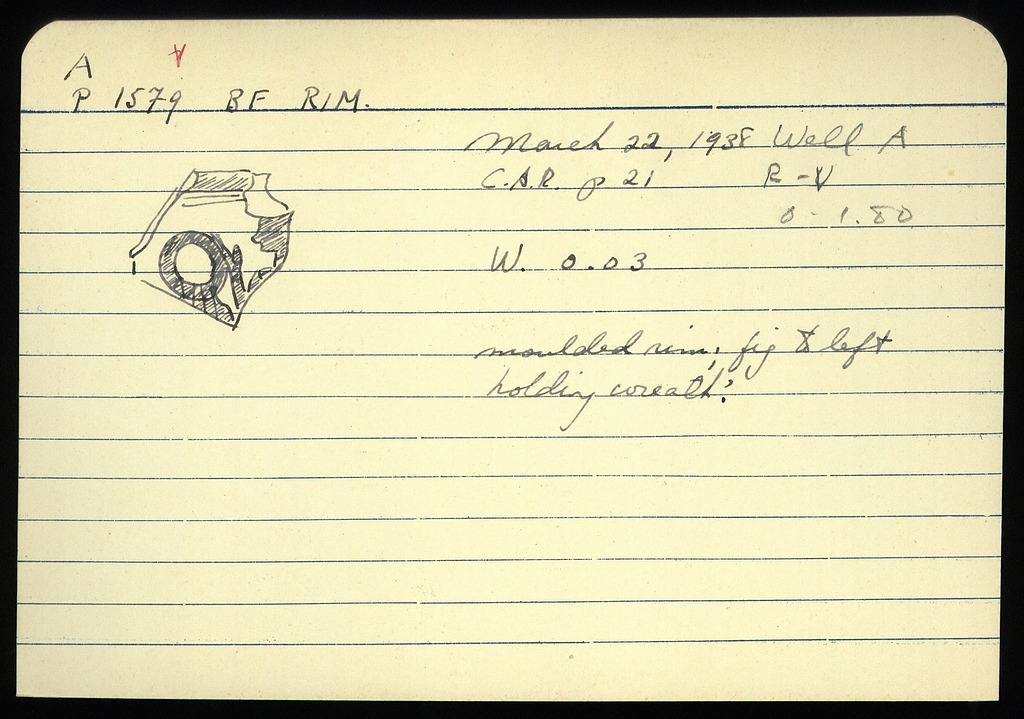 A V
P 1579 BF RIM.
March 22, 1938 Well A
C.A.R. p 21 R-V
0-1.80
W. 0.03
moulded rim; fig to left
holding wreath?